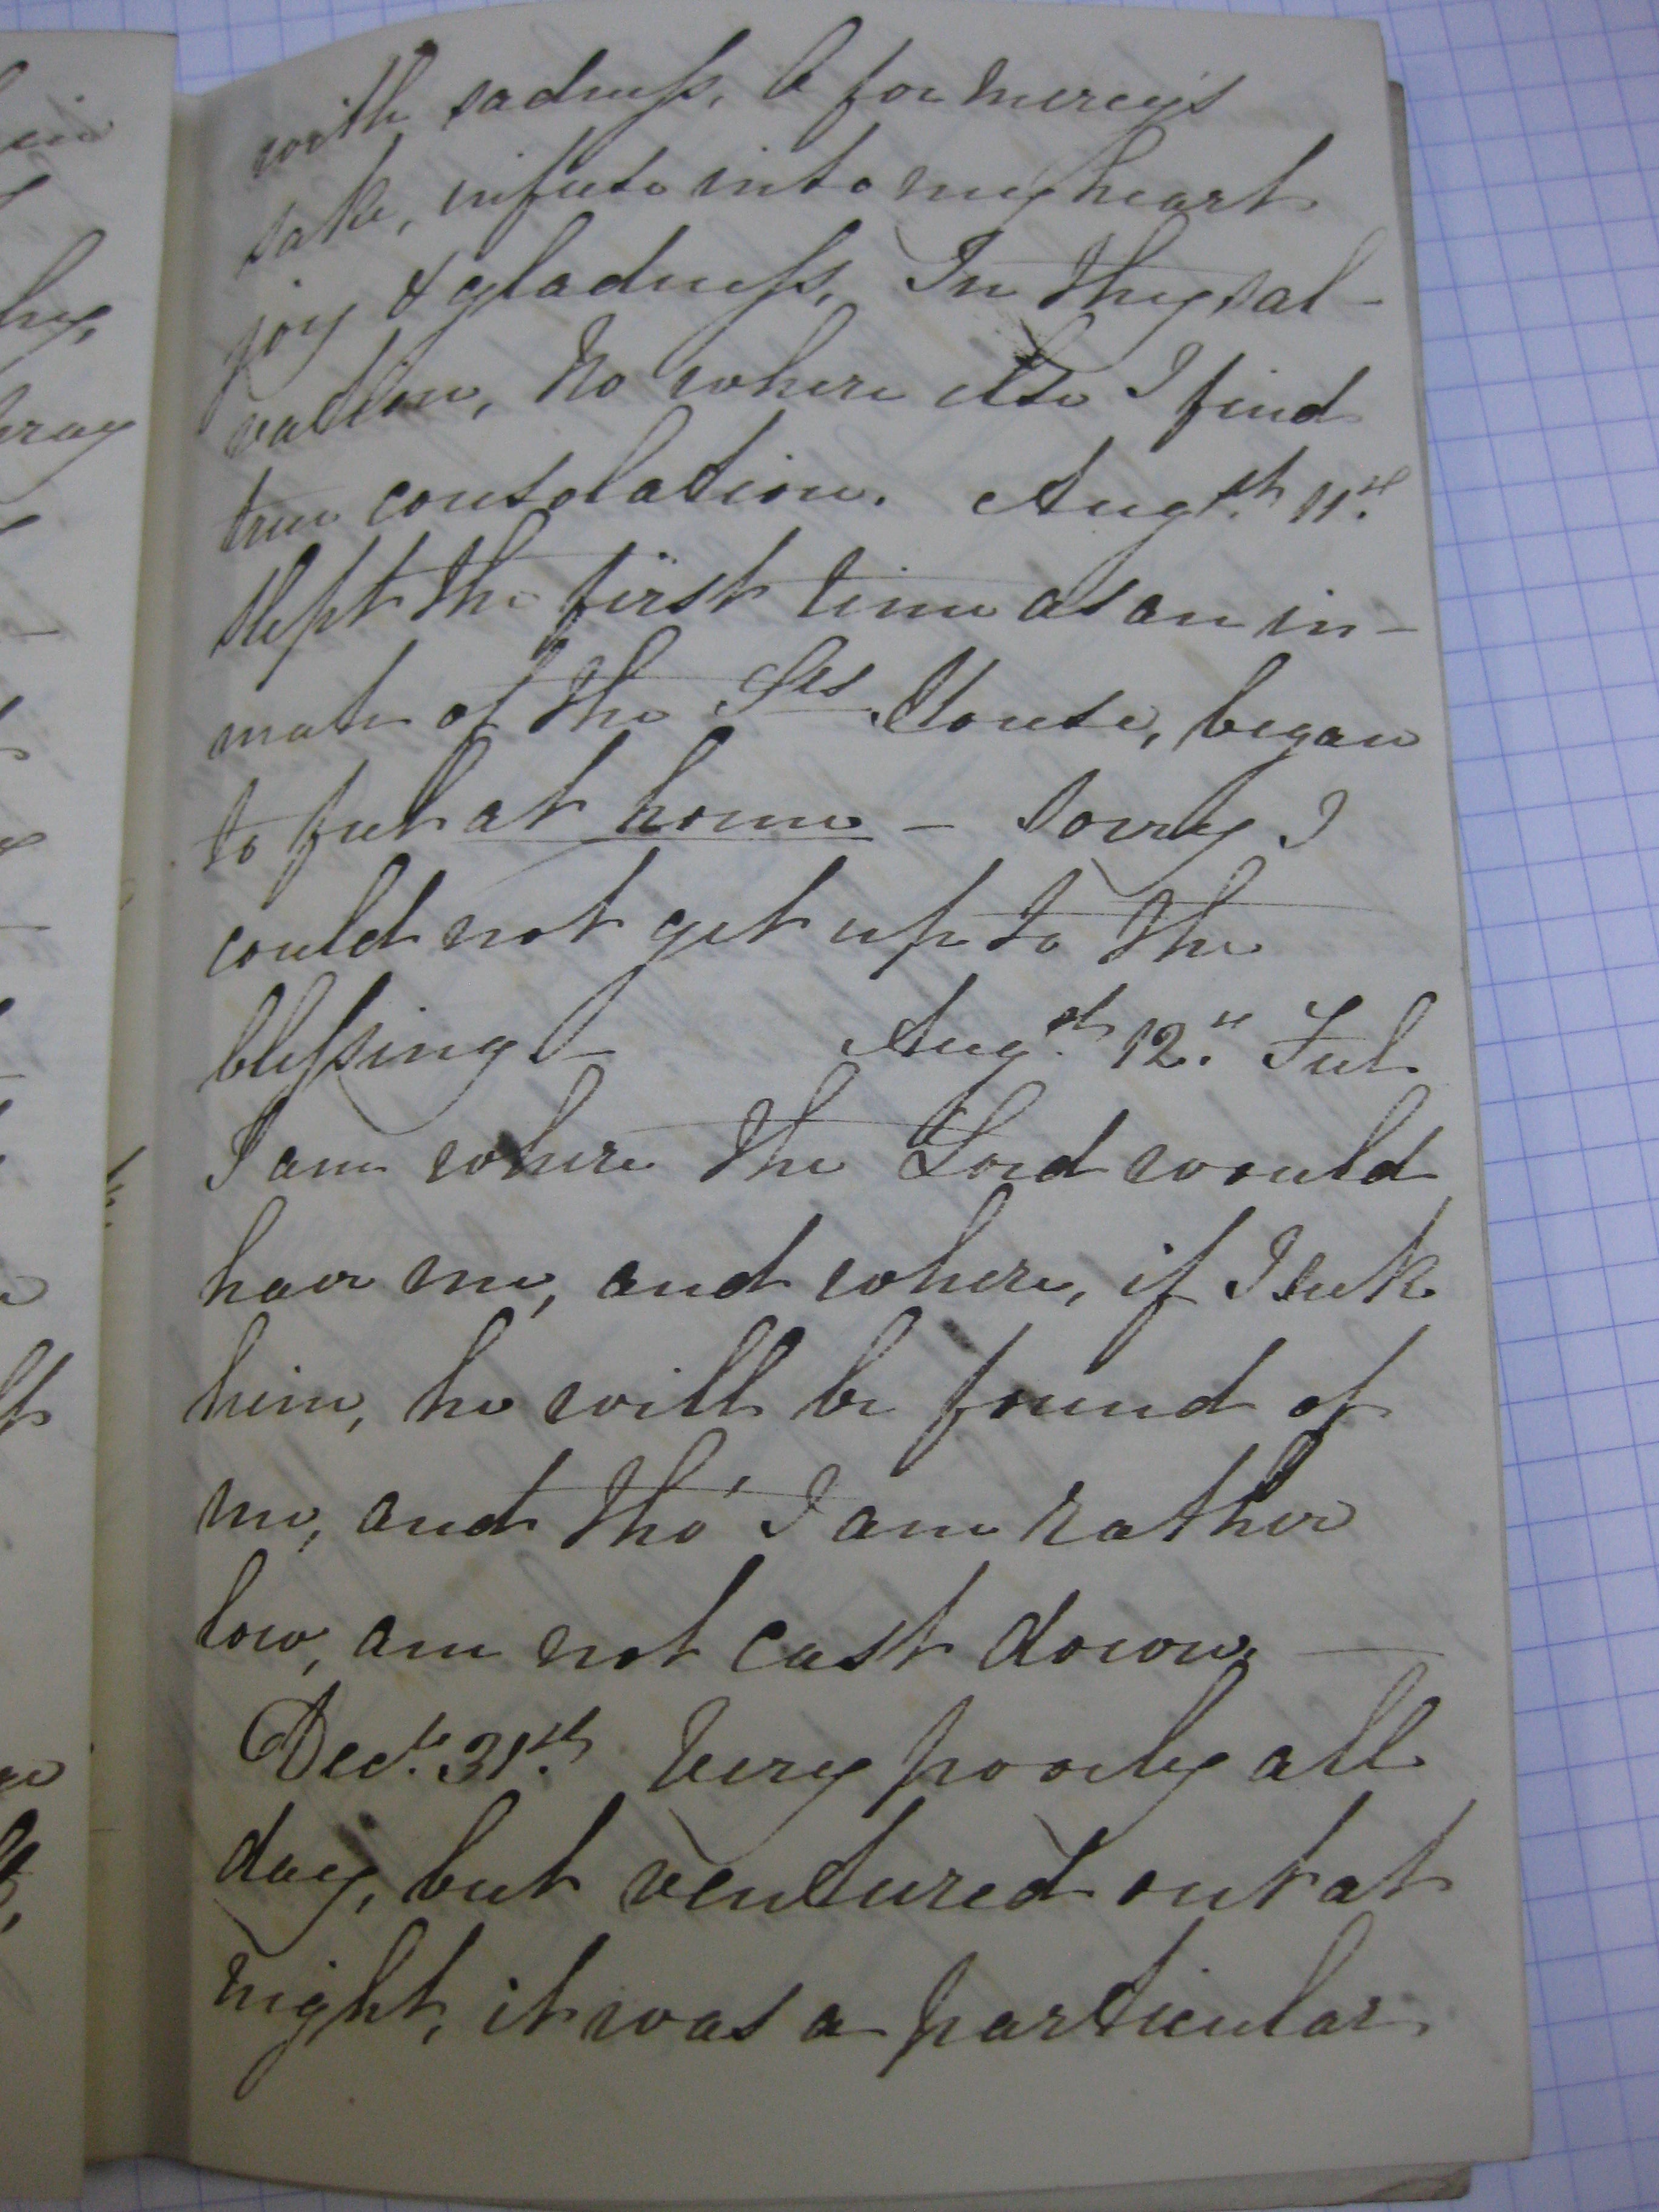 with sadness. O for mercy's
sake, infuse into my heart
joy & gladness. In thy sal-
vation, no where else I find
true consolation. Augst. 11th.
slept the first time as an in-
mate of the Srs House, began
to feel at home – sorry I
could not get up to the
blessing. – Augst. 12th. Feel
I am where the Lord would
have me, and where, if I seek
him, he will be found of
me, and tho' I am rather
low, am not cast down. —
Decr. 31st. Very poorly all
day, but ventured out at
night, it was a particular